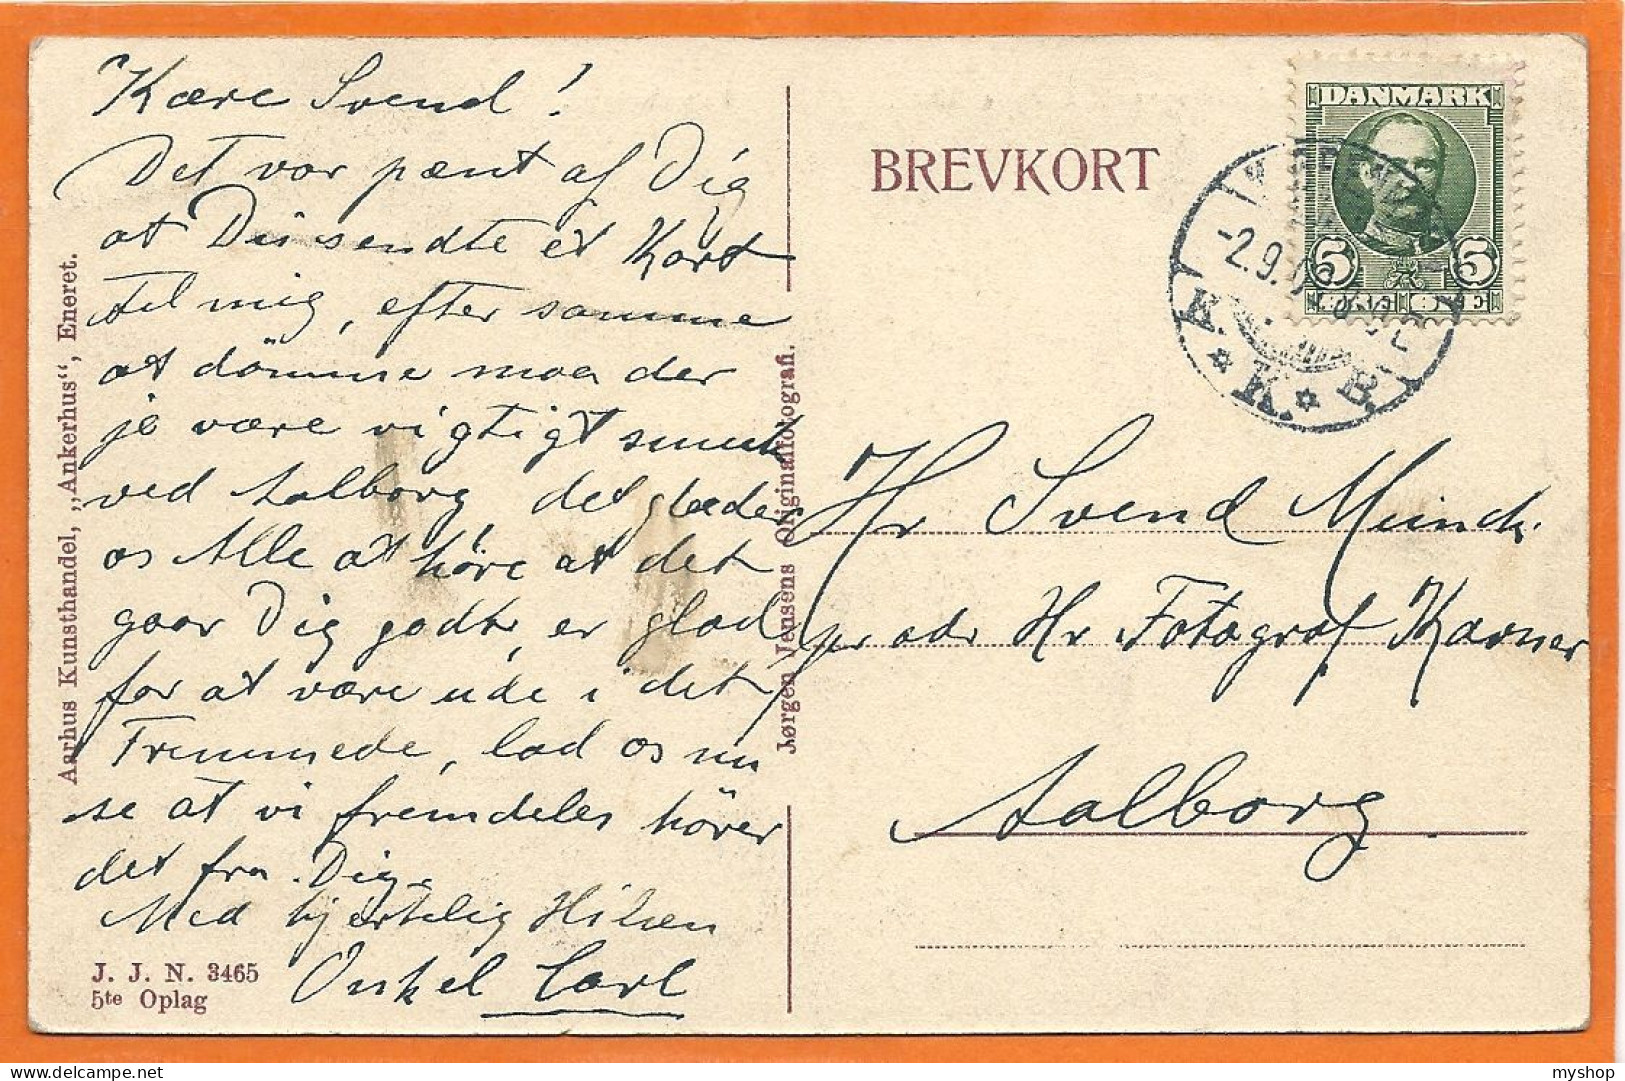 Kære Svend!
Det var pænt af Dig
at Du sendte et Kort
til mig, efter samme
at dömme maa der
jo være vigtigt smuk
ved Aalborg det glæder
os Alle at höre at det
gaar Dig godt, er glad
for at være ude i det
Fremmede, lad os nu
se at vi fremdeles hörer
det fra Dig.
Med hjertelig Hilsen
Onkel Carl
J. J. N. 3465
5te Oplag
Aarhus Kunsthandel, „Ankerhus“, Eneret.
Jørgen Jensens Originalfotografi.
BREVKORT
DANMARK
5 5
-2.9.
K. K. B.
Hr Svend Münch.
pr adr Hr Fotograf
Aalborg.
myshop